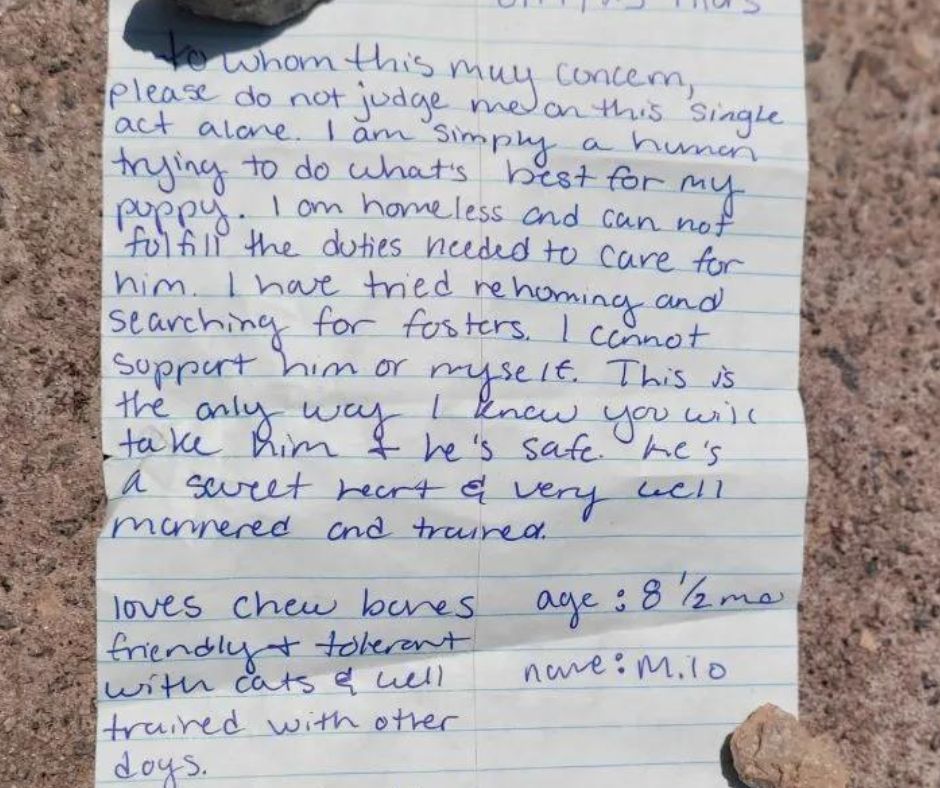 to whom this may concern,
please do not judge me on this single
act alone. I am simply a human
trying to do what's best for my
puppy. I am homeless and can not
fulfill the duties needed to care for
him. I have tried rehoming and
searching for fosters. I cannot
support him or myself. This is
the only way I know you will
take him & he's safe. he's
a sweet heart & very well
mannered and trained.
loves chew bones
friendly & tolerant
with cats & well
trained with other
dogs.
age: 8 1/2 mo
name: Milo